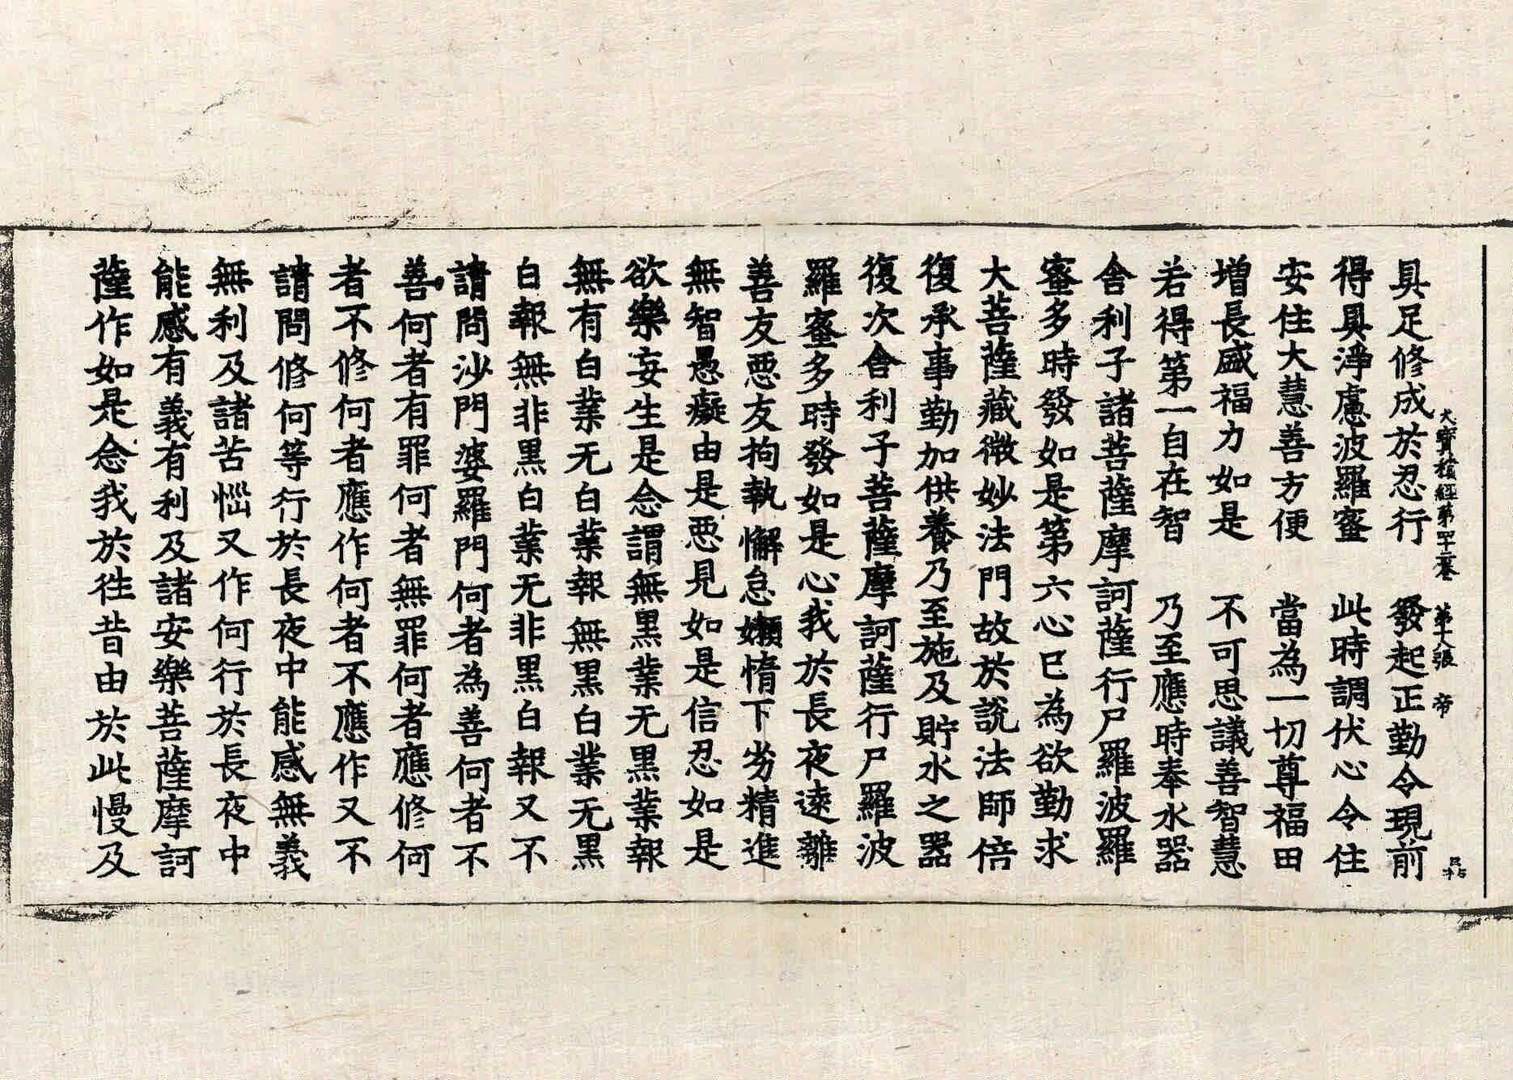 大寶積經第四十二卷　第十八張　帝
具足修成於忍行　發起正勤令現前
得具淨慮波羅蜜　此時調伏心令住
安住大慧善方便　當為一切尊福田
增長盛福力如是　不可思議善智慧
若得第一自在智　乃至應時奉水器
舍利子諸菩薩摩訶薩行尸羅波羅
蜜多時發如是第六心已為欲勤求
大菩薩藏微妙法門故於說法師倍
復承事勤加供養乃至施及貯水之器
復次舍利子菩薩摩訶薩行尸羅波
羅蜜多時發如是心我於長夜遠離
善友惡友拘執懈怠嬾惰下劣精進
無智愚癡由是惡見如是信忍如是
欲樂妄生是念謂無黑業无黑業報
無有白業无白業報無黑白業无黑
白報無非黑白業无非黑白報又不
請問沙門婆羅門何者為善何者不
善何者有罪何者無罪何者應修何
者不修何者應作何者不應作又不
請問修何等行於長夜中能感無義
無利及諸苦惱又作何行於長夜中
能感有義有利及諸安樂菩薩摩訶
薩作如是念我於往昔由於此慢及